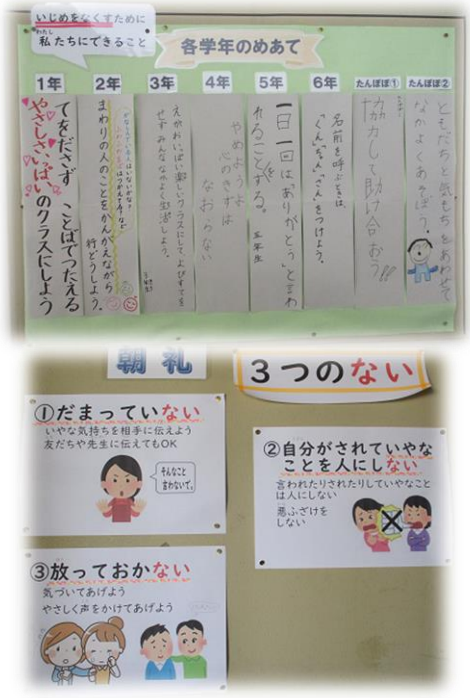 いじめをなくすために
私たちにできること
わたし
各学年のめあて
1年
2年
3年
4年
5年
6年
たんぽぽ①
たんぽぽ②
てをださず ことばでつたえる
やさしさいっぱいのクラスにしよう
まわりの人のことをかんがえながら
行どうしよう。
えがおいっぱい楽しいクラスにして
みんななかよく生活しよう。
やめようよ
心のきずは
なおらない
一日一回は「ありがとう」と言わ
れることをする。
五年生
名前を呼ぶときは
「くん」「ちゃん」「さん」をつけよう。
協力して助け合おう!!
ともだちと気もちをあわせて
なかよくあそぼう。
朝礼
3つのない
①だまっていない
いやな気持ちを相手に伝えよう
友だちや先生に伝えてもOK
そんなこと
言わないで。
②自分がされていやな
ことを人にしない
言われたりされたりしていやなこと
は人にしない
悪ふざけを
しない
③放っておかない
気づいてあげよう
やさしく声をかけてあげよう